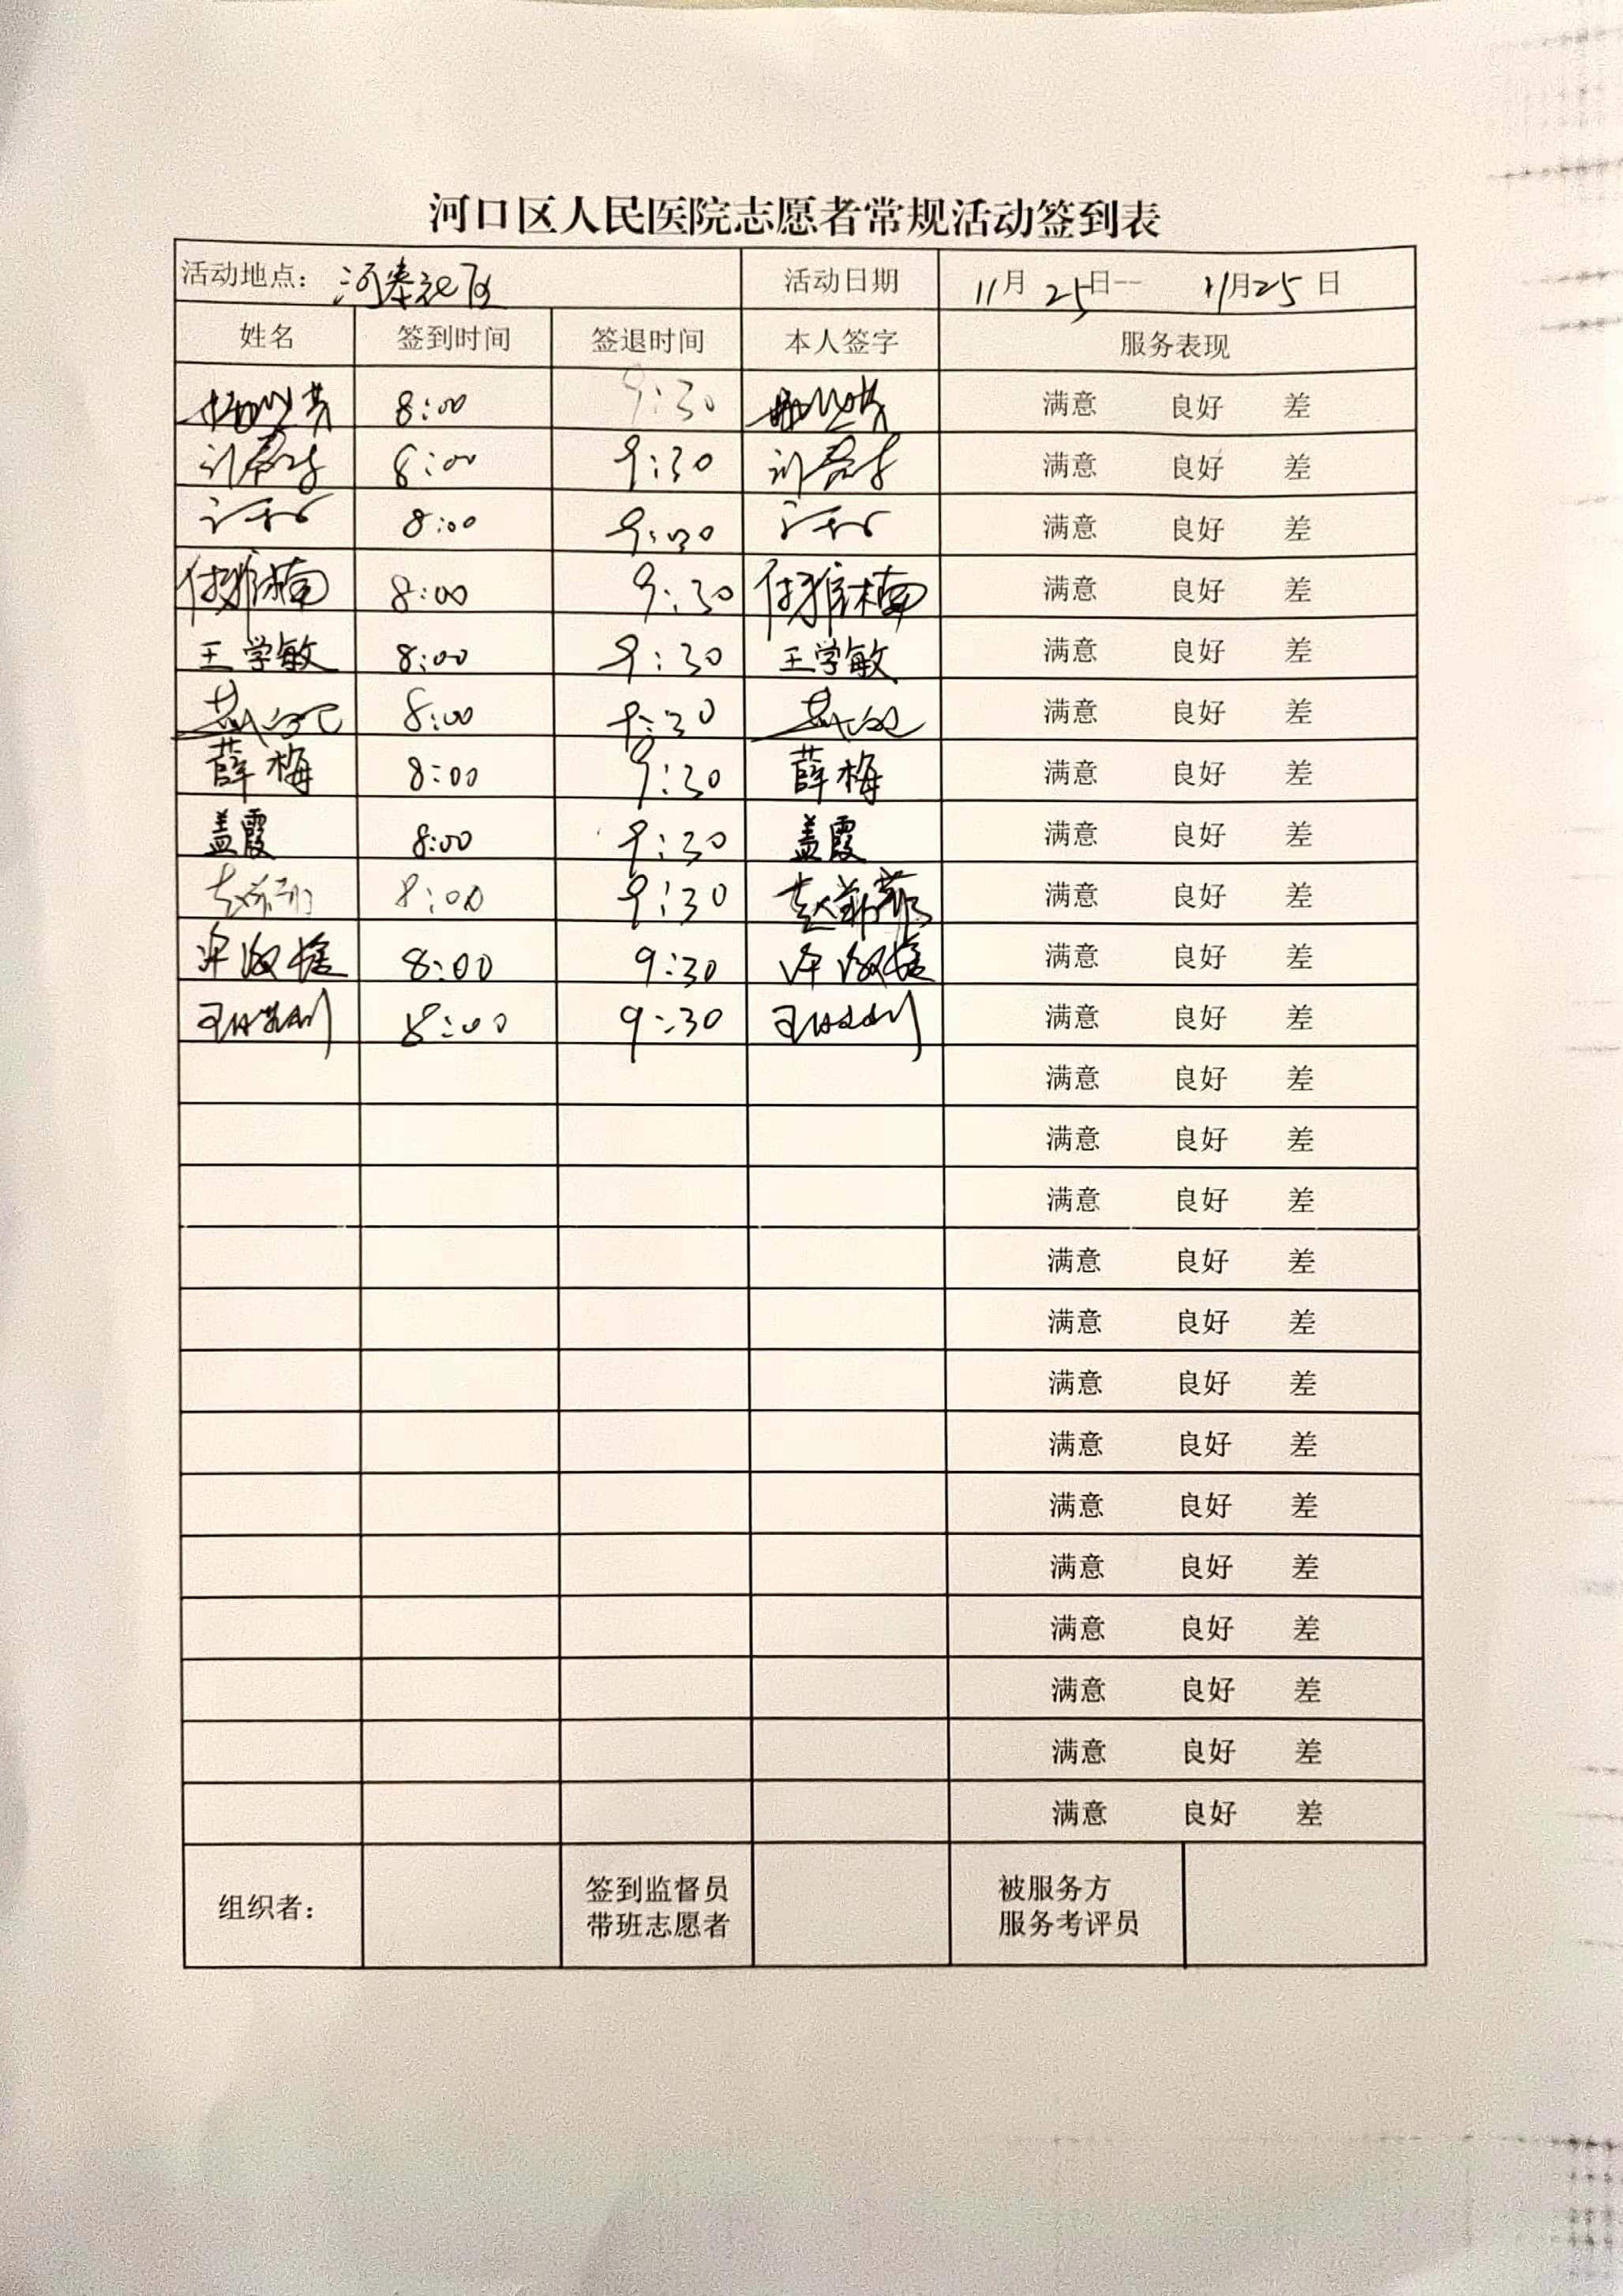 河口区人民医院志愿者常规活动签到表
活动地点： 河 社区 活动日期 11月 25日-- 11月25日
姓名 签到时间 签退时间 本人签字 服务表现
8:00 9:30 满意 良好 差
8:00 9:30 满意 良好 差
8:00 9:30 满意 良好 差
付雅楠 8:00 9:30 付雅楠 满意 良好 差
王学敏 8:00 9:30 王学敏 满意 良好 差
8:00 9:30 满意 良好 差
薛梅 8:00 9:30 薛梅 满意 良好 差
盖霞 8:00 9:30 盖霞 满意 良好 差
8:00 9:30 赵菲菲 满意 良好 差
8:00 9:30 满意 良好 差
8:00 9:30 满意 良好 差
满意 良好 差
满意 良好 差
满意 良好 差
满意 良好 差
满意 良好 差
满意 良好 差
满意 良好 差
满意 良好 差
满意 良好 差
满意 良好 差
满意 良好 差
满意 良好 差
满意 良好 差
组织者： 签到监督员 被服务方
带班志愿者 服务考评员